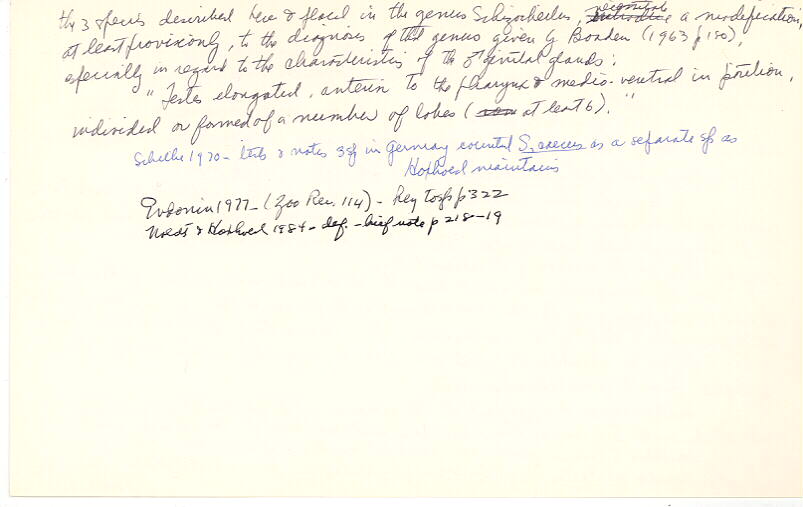 the 3 species described here & placed in the genus Schizochilus, necessitate a modification,
at least provisionly, to the diagnosis of the genus given by Boaden (1963 p 150),
especially in regard to the characteristics of the ♂ genital glands:
"Testes elongated, anterior to the pharynx & medio-ventral in position,
individed or formed of a number of lobes (at least 6)."
Schilke 1970 - lists & notes 3 sp in Germany counted S. caecus as a separate sp as
Hoxhold maintains
Evdonin 1977 - (Zoo Rec. 114) - Key to sps p 322
Noldt & Hoxhold 1984 - def. - brief note p 218-19